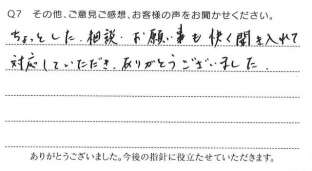 Q7 その他、ご意見ご感想、お客様の声をお聞かせください。
ちょっとした、相談・お願い事も快く聞き入れて
対応していただき、ありがとうございました。
ありがとうございました。今後の指針に役立たせていただきます。